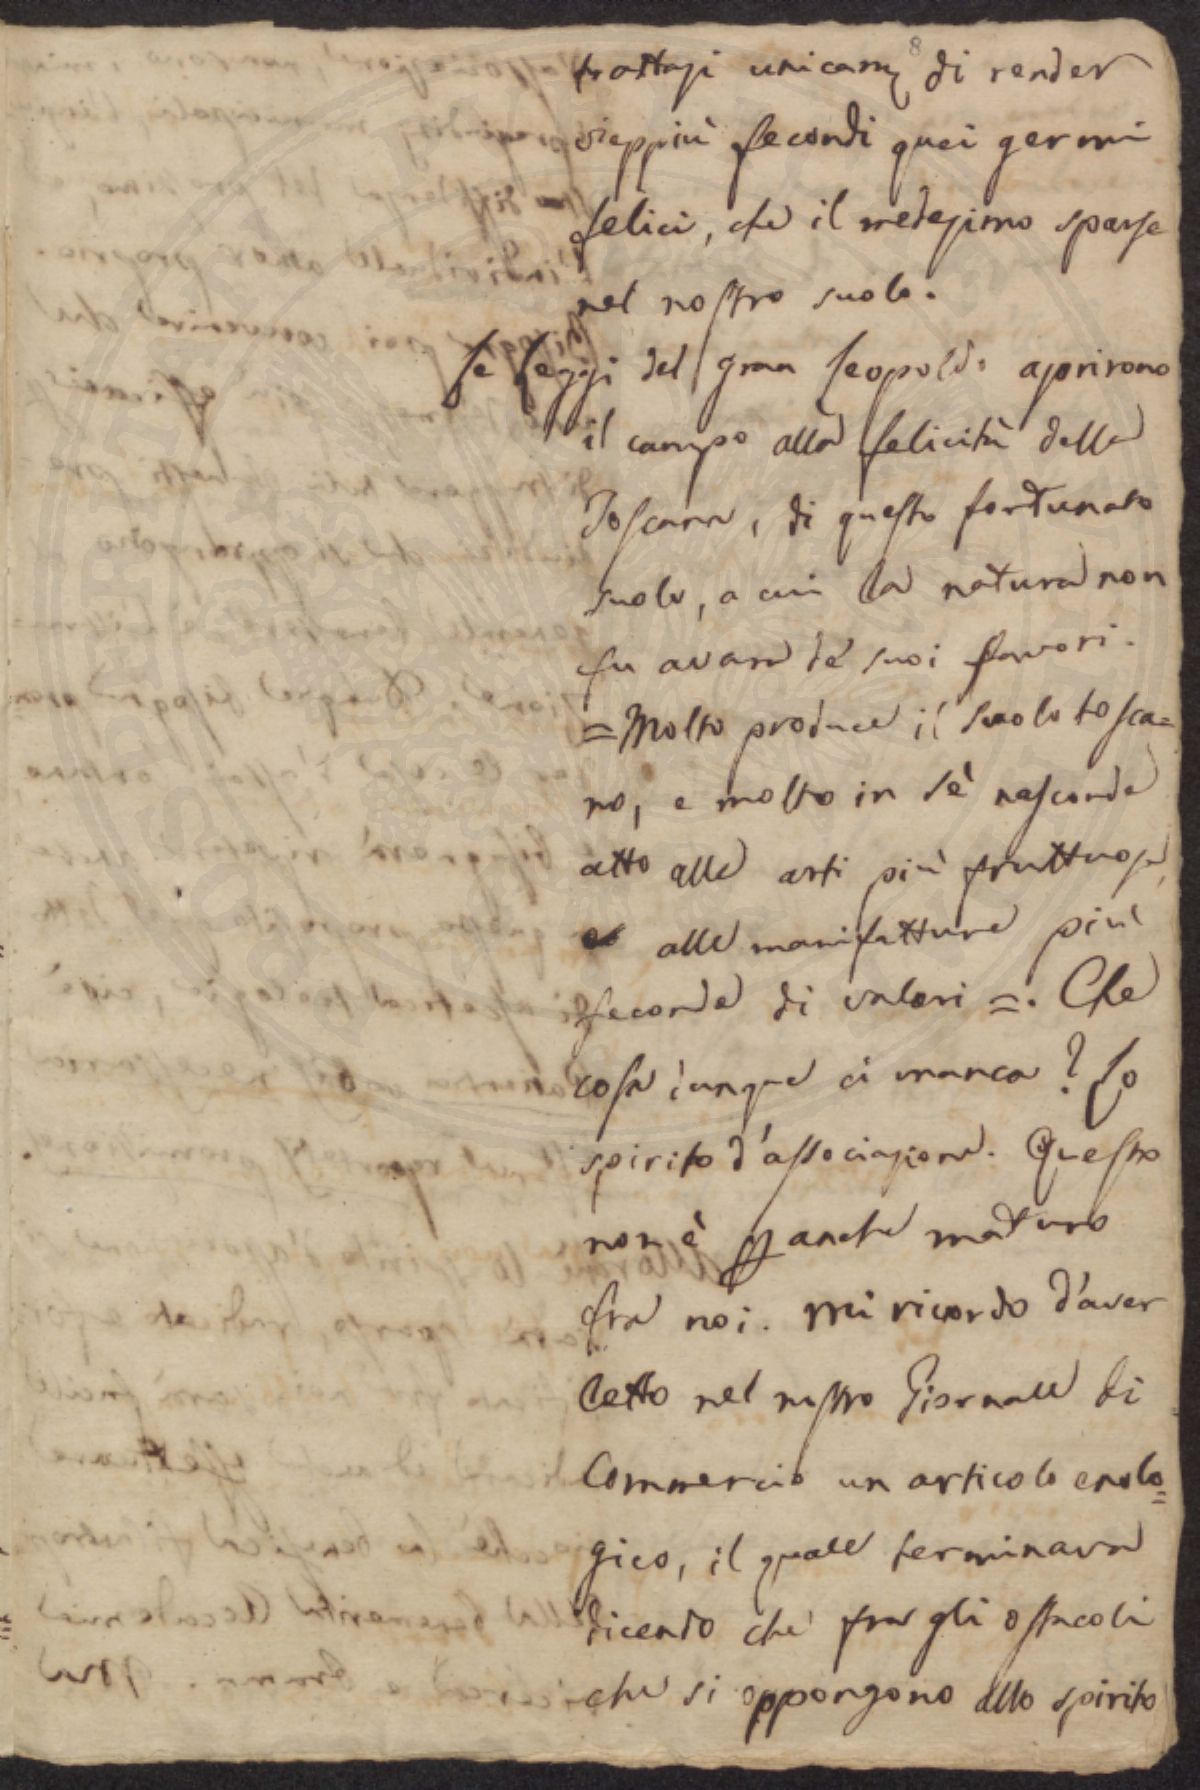 8
trattasi unicam. di render
vieppiù fecondi quei germi
felici, che il medesimo sparse
nel nostro suolo.
Le Leggi del gran Leopoldo aprirono
il campo alla felicità della
Toscana, di questo fortunato
suolo, a cui la natura non
fu avara de' suoi favori.
= Molto produce il suolo tosca=
no, e molto in sè nasconde
atto alle arti più fruttuose,
e alle manifatture più
feconde di valori =. Che
cosa dunque ci manca? Lo
spirito d'associazione. Questo
non è anche maturo
fra noi. Mi ricordo d'aver
letto nel nostro Giornale di
Commercio un articolo enolo=
gico, il quale terminava
dicendo che fra gli ostacoli
che si oppongono allo spirito